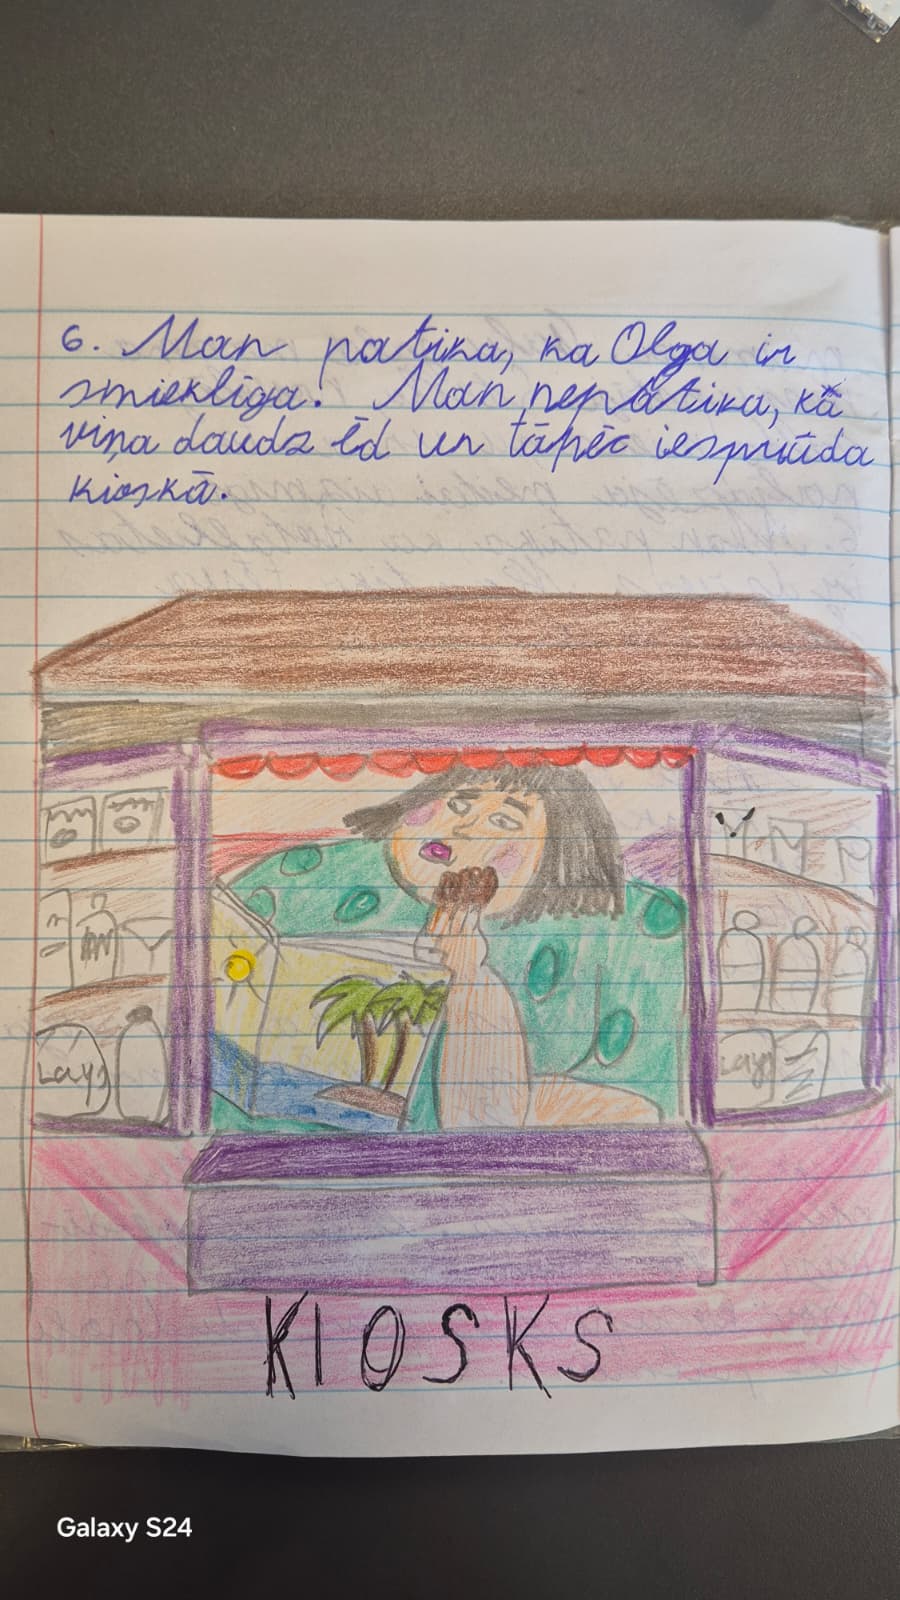 6. Man patika, ka Olga ir
smieklīga! Man nepatika, kā
viņa daudz ēd un tāpēc iesprūda
kioskā.
Lays
Lays
KIOSKS
Galaxy S24